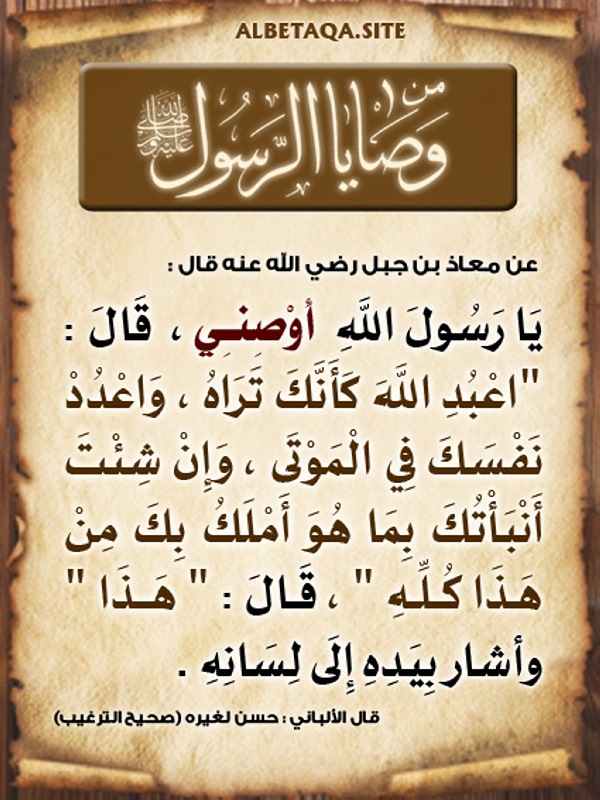 ALBETAQA.SITE
من وصايا الرسول ﷺ
عن معاذ بن جبل رضي الله عنه قال :
يَا رَسُولَ اللَّهِ أوْصِنِي ، قَالَ :
"اعْبُدِ اللَّهَ كَأَنَّكَ تَرَاهُ ، وَاعْدُدْ
نَفْسَكَ فِي الْمَوْتَى ، وَإِنْ شِئْتَ
أَنْبَأْتُكَ بِمَا هُوَ أَمْلَكُ بِكَ مِنْ
هَذَا كُلِّهِ " ، قَالَ : " هَذَا "
وأشار بِيَدِهِ إِلَى لِسَانِهِ .
قال الألباني : حسن لغيره (صحيح الترغيب)